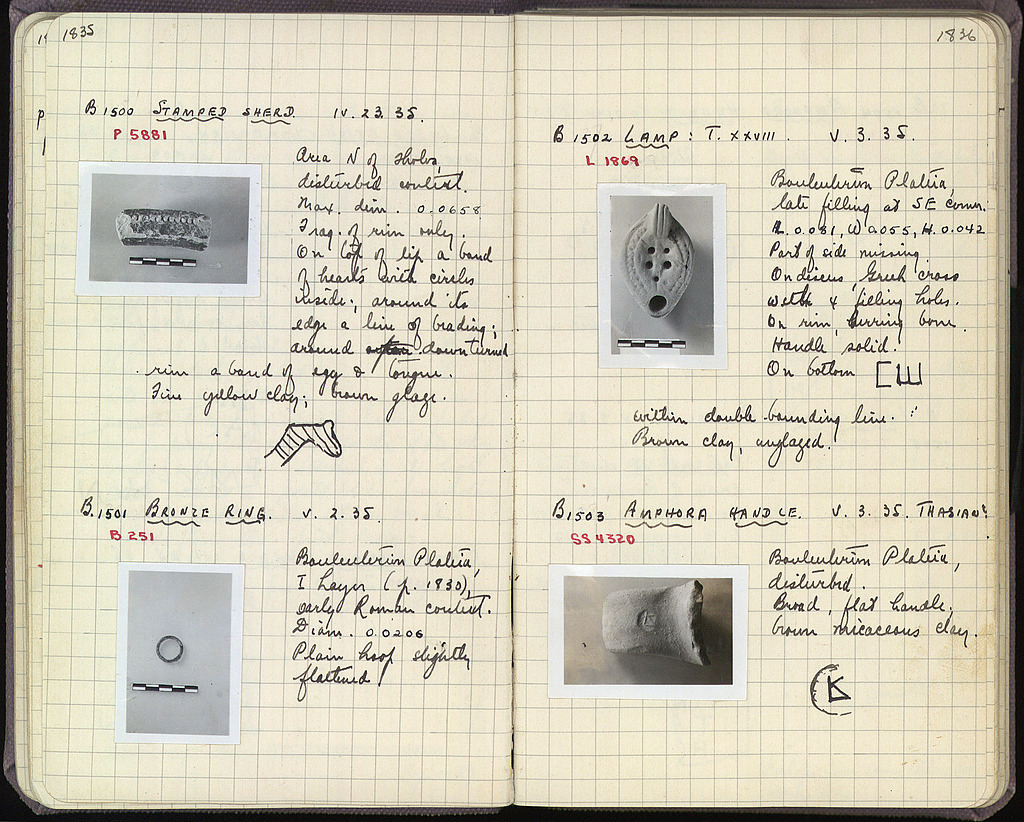 1835
B 1500 STAMPED SHERD. IV. 23. 35.
P 5881
Area N of Tholos,
disturbed context.
Max. dim. 0.0658
Frag. of rim only.
On top of lip a band
of hearts with circles
inside; around its
edge a line of beading;
around downturned
rim a band of egg & tongue.
Fine yellow clay; brown glaze.
B.1501 BRONZE RING. V. 2. 35.
B 251
Bouleuterion Plateia,
I Layer (p. 1830),
early Roman context.
Diam. 0.0206
Plain hoop slightly
flattened
1836
B 1502 LAMP: T. XXVIII. V. 3. 35.
L 1869
Bouleuterion Plateia,
late filling at SE corner.
L. 0.081, W 0.055, H. 0.042
Part of side missing.
On discus, Greek cross
with 4 filling holes.
On rim, herring bone.
Handle solid.
On bottom
within double bounding line.
Brown clay, unglazed.
B1503 AMPHORA HANDLE. V. 3. 35. THASIAN?
SS 4320
Bouleuterion Plateia,
disturbed.
Broad, flat handle;
brown micaceous clay.
K